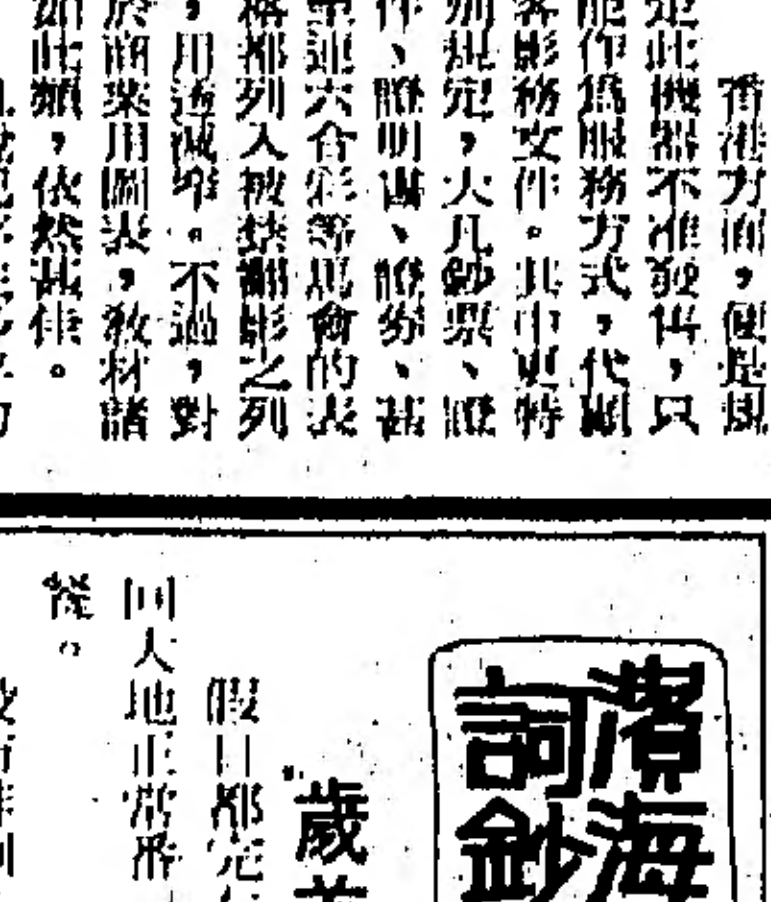 香港方面，便是規
定此機器不准發售，只
能作爲服務方式，代顧
客影務文件。其中更特
別規定，大凡鈔票、證
件、證明書、證券、甚
至連六合彩等馬會的表
格都列入被禁翻影之列
，用途減窄。不過，對
於商業用圖表，教材諸
如此類，依然甚佳。
濱海
詞鈔
歲首
假日都完
回大地正常